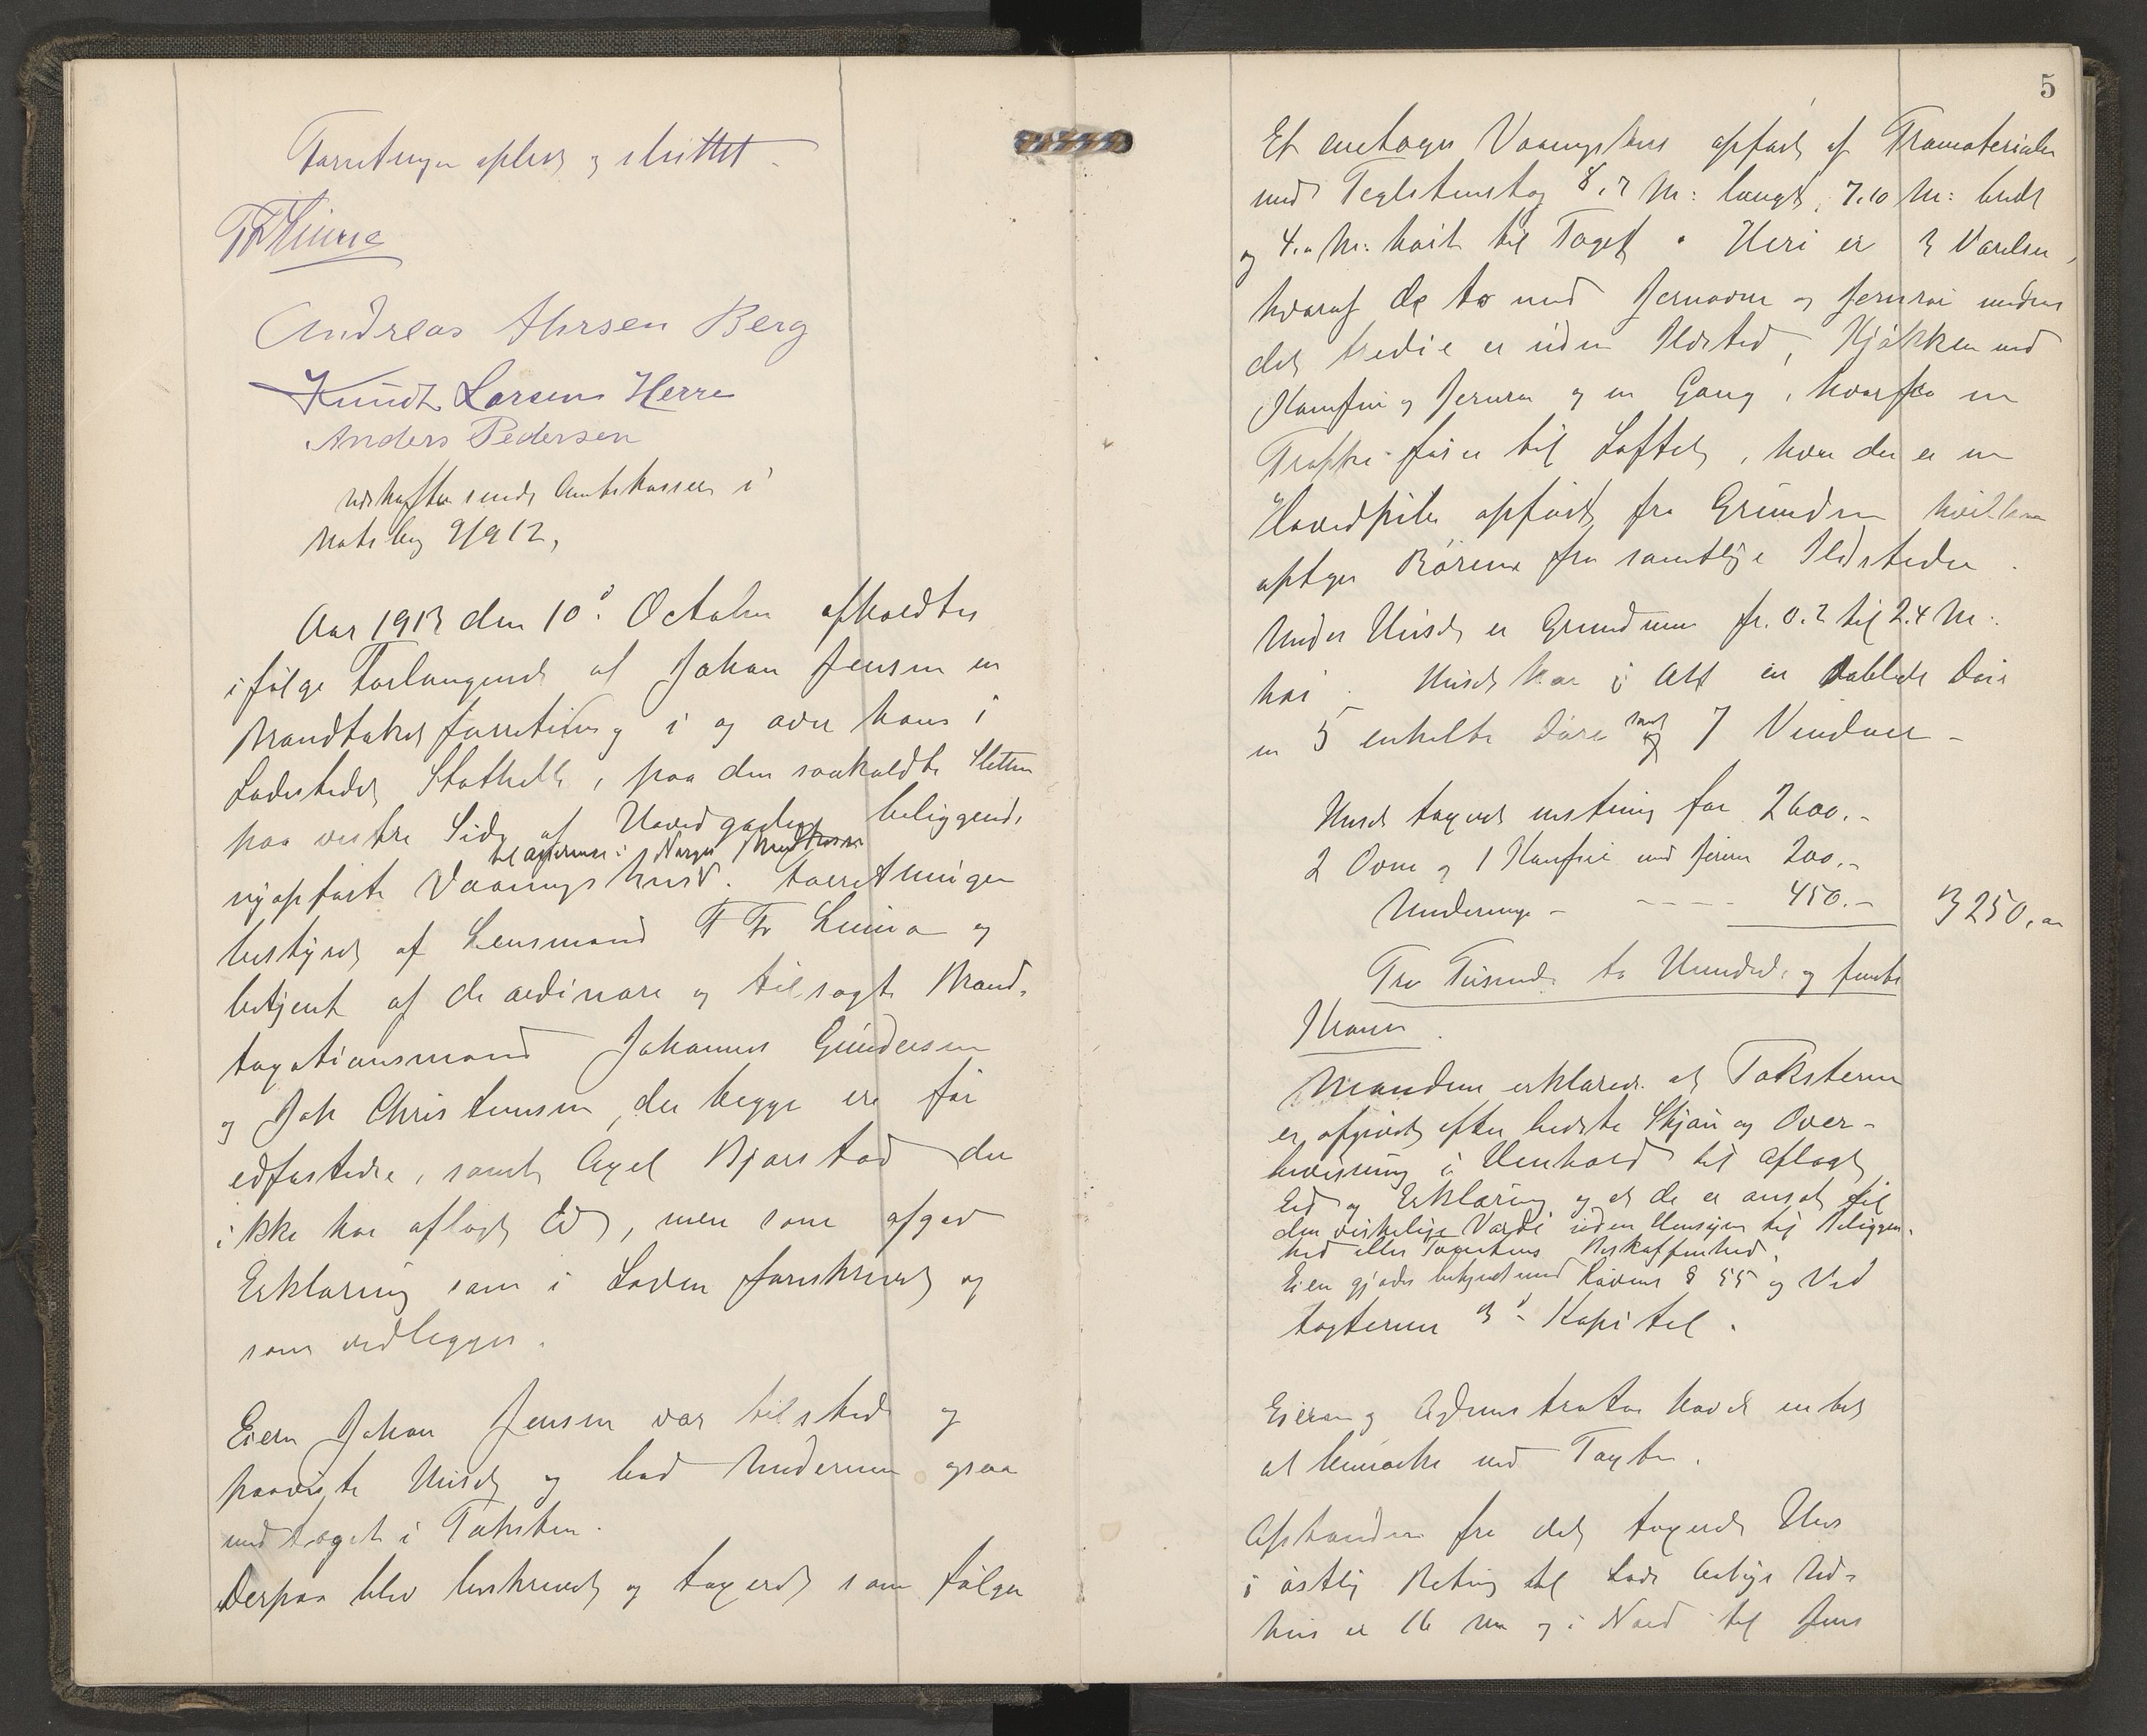 Forretningen oplest og sluttet.
Andreas Ahrsen Berg
Knudt Larsens Herre
Anders Pedersen
Udskrift sendt Amtskassen i
9/9 12,
Aar 1913 den 10d: October afholdtes
ifølge Forlangende af Johan Jensen en
Brandtakstforretning i og over hans i
Ladestedet Stathelle, paa den saakaldte Sletten
paa vestre Side af Hovedgaden beliggende
til Assurance i Norges Brandkasse
nyopførte Vaaningshus. Forretningen
bestyret af Lensmand og
betjent af de ordinære og tilsagte Brand-
taxationsmænd Johannes Gundersen
og Joh Christensen, der begge ere før
edfæstede, samt Axel Bjørstad der
ikke har aflagt Ed, men som afgav
Erklæring som i Loven foreskrevet og
som vedlegges.
Eieren Johan Jensen var tilstede og
paaviste Huset og bad Undermuren ogsaa
medtaget i Taksten.
Derpaa blev beskrevet og taxeret som følger
5
Et enetages Vaaningshus opført af Træmaterialer
med Teglstenstag 8,7 M: langt, 7.10 M: bredt
og 4.0 M: høit til Taget. Heri er 3 Værelser,
hvoraf de to med Jernovne og Jernrør medens
det tredie er uden Ildsted, Kjøkken med
Komfur og Jernrør og en Gang, hvorfra en
Trappe fører til Loftet, hvor der er en
Hovedpibe opført fra Grunden hvilken
optager Rørene fra samtlige Ildsteder.
Under Huset er Grundmur fr. 0.2 til 2.4 M:
høi. Huset har i Alt en dobbelt Dør
en 5 enkelte Døre samt 7 Vinduer -
Huset taxeret for 2600.-
2 Ovne og 1 Komfur med Jernrør 200.-
Undermur - - - - - 450.- 3250.00
Tre Tusinde to Hundrede og femti
Kroner.
Mændene erklærede at Taksterne
er afgivet efter bedste Skjøn og Over-
bevisning i Henhold til aflagt
Ed og Erklæring og at de er ansat til
den virkelige Værdi uden Hensyn til Beliggen-
hed eller Tomtens Beskaffenhed.
Eieren gjordes bekjendt med Lovens § 55 og Ved
tægternes 3d: Kapitel.
Eieren og Administrator havde intet
at bemærke ved Taxten.
Afstanden fra det taxerede Hus
i østlig Retning til Ud-
hus er 16 m og i Nord til Jens